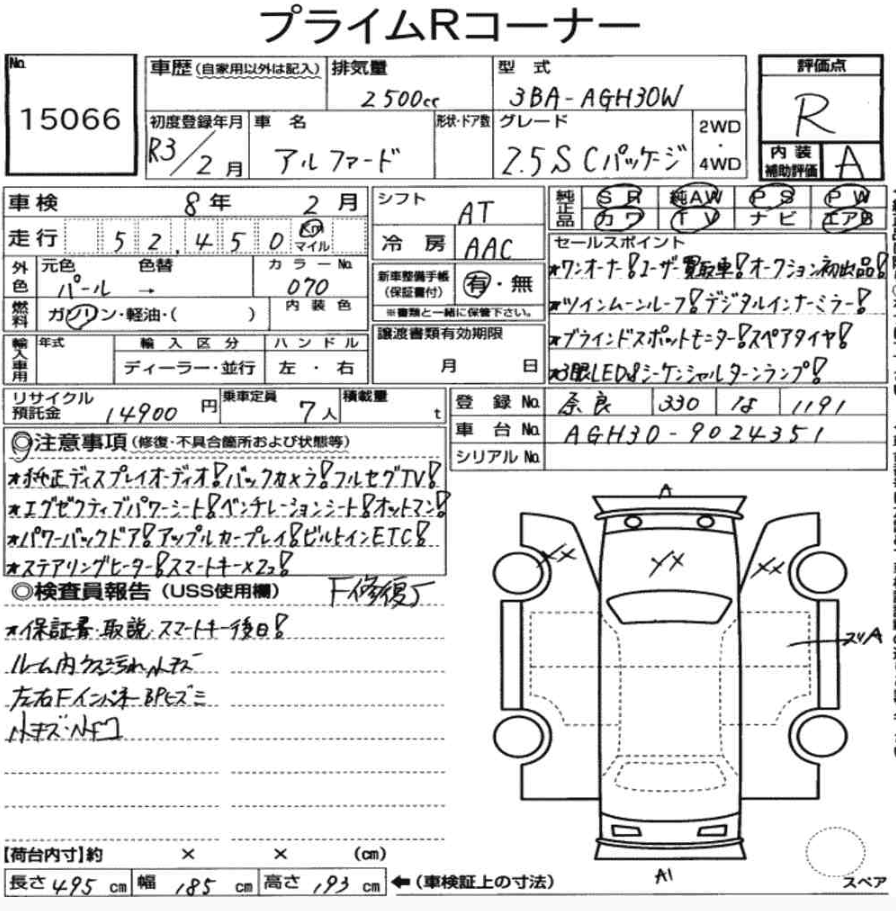 プライムRコーナー
No.
15066
車歴(自家用以外は記入)
排気量
2500cc
型 式
3BA-AGH30W
評価点
R
内装
補助評価
A
初度登録年月
R3/2月
車 名
アルファード
形状・ドア数
グレード
2.5S Cパッケージ
2WD
・
4WD
車検
8年 2月
走行
52,450
Km
マイル
シフト
AT
冷房
AAC
純正品
SR 純AW PS PW
カワ TV ナビ エアB
外色
元色 色替
パール →
カラーNo.
070
燃料
ガソリン・軽油・( )
内装色
新車整備手帳
(保証書付)
有・無
※書類と一緒に保管下さい。
セールスポイント
★ワンオーナー!ユーザー買取車!オークション初出品!
★ツインムーンルーフ!デジタルインナーミラー!
★ブラインドスポットモニター!スペアタイヤ!
★3眼LED&シーケンシャルターンランプ!
輸入車用
年式
輸入区分
ハンドル
ディーラー・並行
左・右
譲渡書類有効期限
月 日
リサイクル
預託金
14900円
乗車定員
7人
積載量
t
登録No.
奈良 330 な 1191
車台No.
AGH30-9024351
シリアルNo.
◎注意事項(修復・不具合箇所および状態等)
★純正ディスプレイオーディオ!バックカメラ!フルセグTV!
★エグゼクティブパワーシート!ベンチレーションシート!オットマン!
★パワーバックドア!アップルカープレイ!ビルトインETC!
★ステアリングヒーター!スマートキー×2コ!
◎検査員報告(USS使用欄)
F修復
★保証書・取説・スマートキー後日!
ルーム内 汚れ 小キズ
左右Fインパネ BPヒズミ
小キズ・小
A
XX
XX
A
A1
【荷台内寸】約 × × (cm)
長さ495cm 幅185cm 高さ193cm
←(車検証上の寸法)
スペア